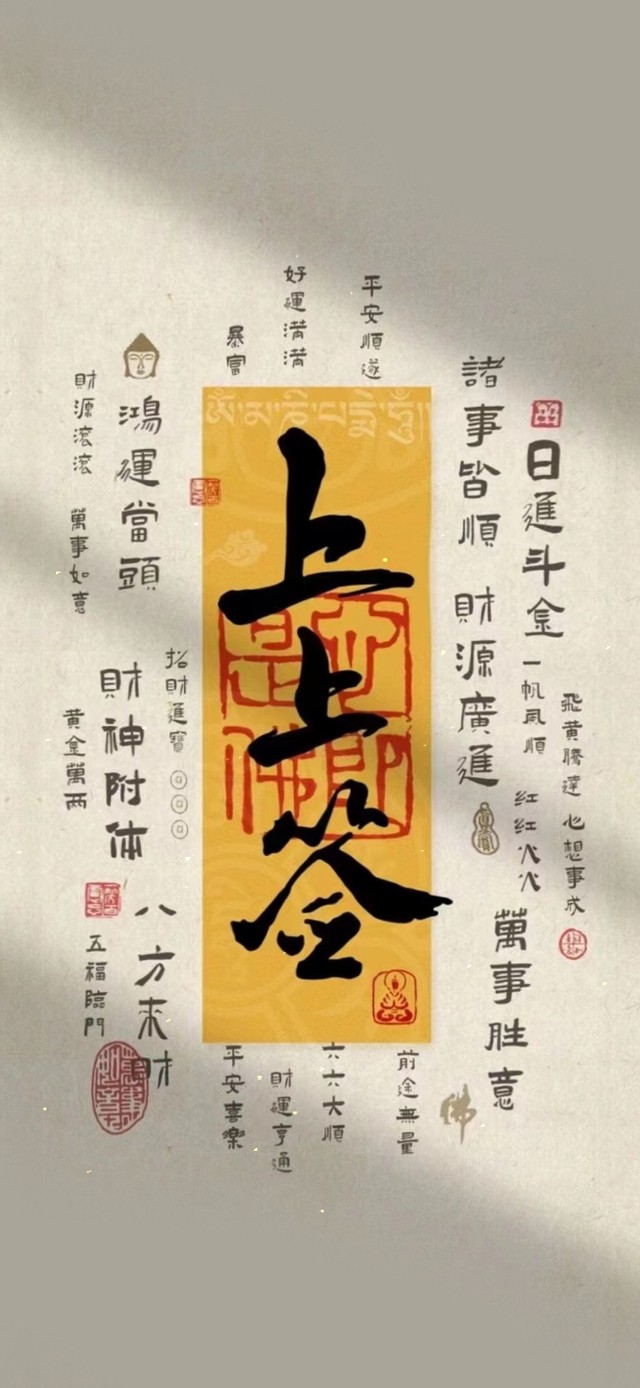 平安順遂
好運滿滿
暴富
諸事皆順
日進斗金
鴻運當頭
財源滾滾
萬事如意
ༀ་མ་ཎི་པདྨེ་ཧཱུྃ
上上签
財源廣進
一帆風順
飛黃騰達
心想事成
紅紅火火
萬事胜意
招財進寶
財神附体
黃金萬两
八方来財
五福臨門
心即是佛
平安喜樂
財運亨通
六六大順
前途無量
佛